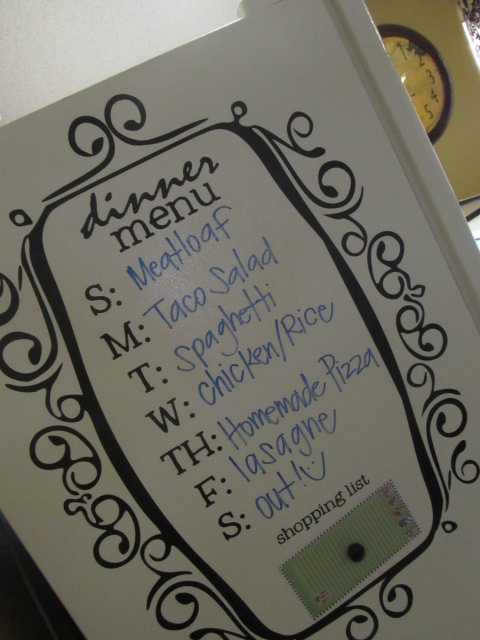 dinner
menu
S: Meatloaf
M: Taco Salad
T: Spaghetti
W: Chicken/Rice
TH: Homemade Pizza
F: lasagne
S: out!
shopping list
1
2
3
4
5